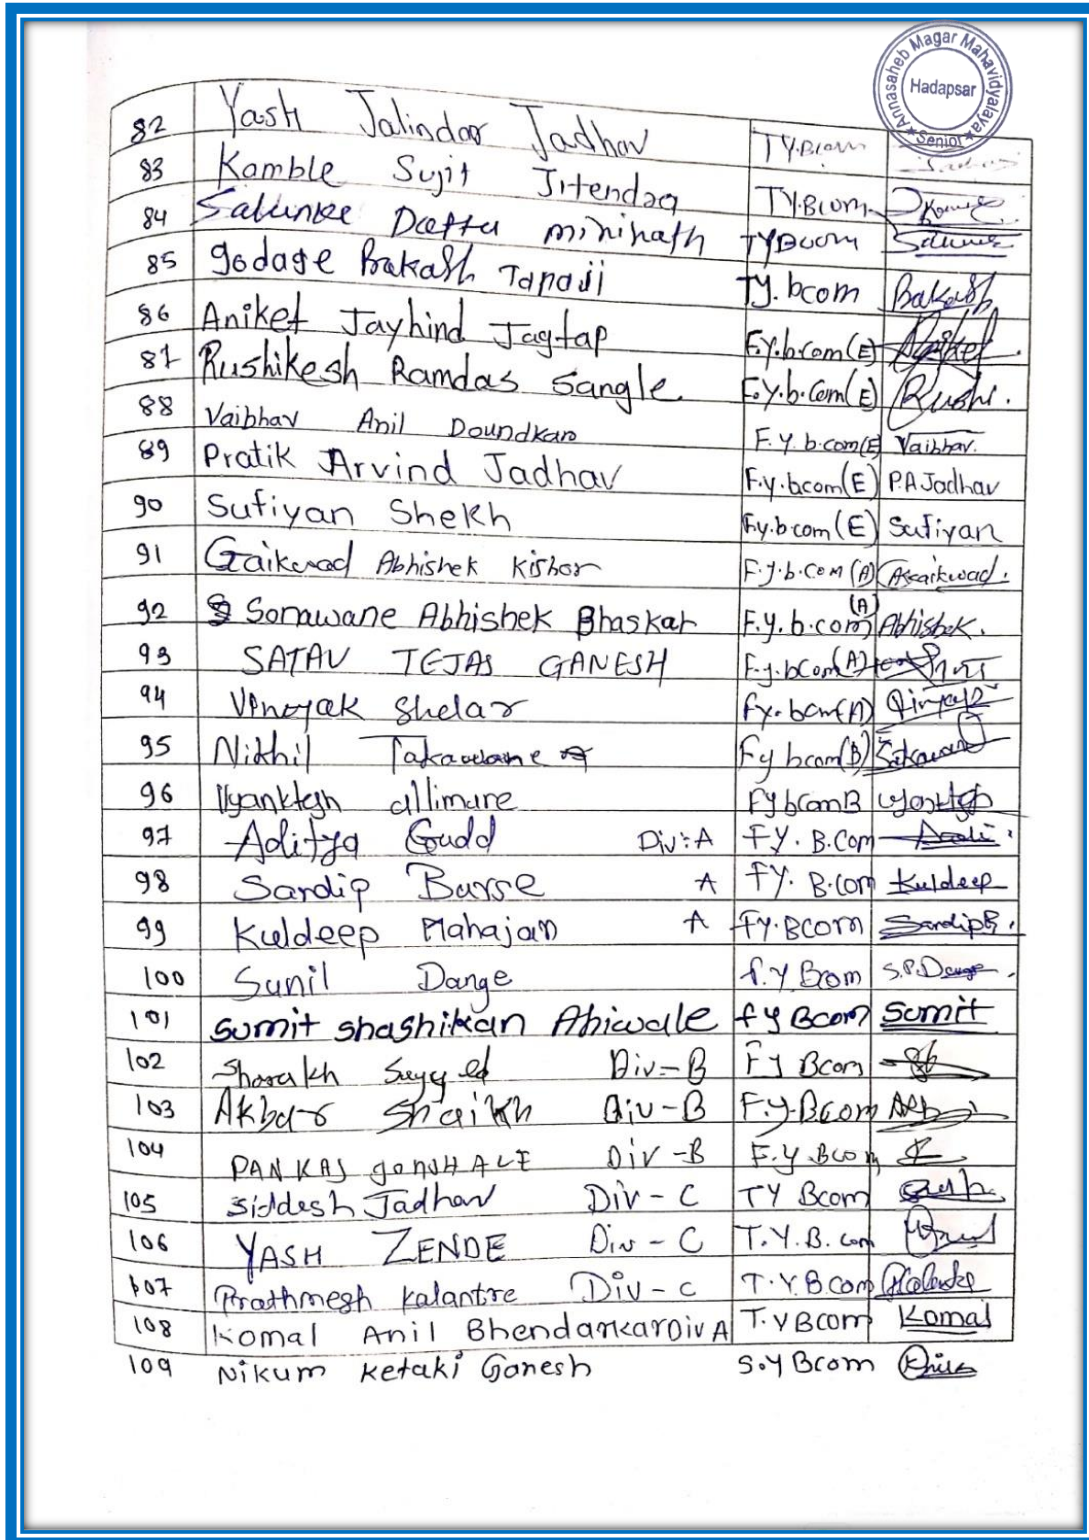 Annasaheb Magar Mahavidyalaya
Hadapsar
★ Senior ★
82 Yash Jalindar Jadhav TY.Bcom
83 Kamble Sujit Jitendra TY.Bcom
84 Salunke Datta mininath TYBcom
85 godage Prakash Tanaji TY.bcom Prakash
86 Aniket Jayhind Jagtap F.Y.b.com(E) Aniket
87 Rushikesh Ramdas Sangle F.Y.b.com(E) Rushi.
88 Vaibhav Anil Doundkar F.Y.b.com(E) Vaibhav.
89 Pratik Arvind Jadhav F.y.bcom(E) P.A Jadhav
90 Sufiyan Shekh F.y.b.com(E) Sufiyan
91 Gaikwad Abhishek Kishor F.y.b.com(A) AGaikwad.
92 Sonawane Abhishek Bhaskar F.y.b.com(A) Abhishek.
93 SATAV TEJAS GANESH F.y.bcom(A)
94 Vinayak Shelar fy.bcom(A)
95 Nikhil Takawane Fy bcom(B)
96 Vyanktesh allimare FybcomB
97 Aditya Gudd Div:A FY. B.Com
98 Sardip Barse A FY. B.Com Kuldeep
99 Kuldeep Mahajan A FY.BCOM SandipB.
100 Sunil Dange f.y Bcom S.P.Dange.
101 Sumit Shashikan Ahiwale fy Bcom Sumit
102 Sayyed Div-B Fy Bcom
103 Akbar Shaikh Div-B F.y.Bcom
104 PANKAJ Div-B F.y.Bcom
105 Siddesh Jadhav Div-C TY Bcom
106 YASH ZENDE Div-C T.Y.B.com
107 Prathmesh Kalantre Div-C T.Y.Bcom
108 Komal Anil Bhendarkar Div A T.Y Bcom Komal
109 Nikum Ketaki Ganesh S.y Bcom